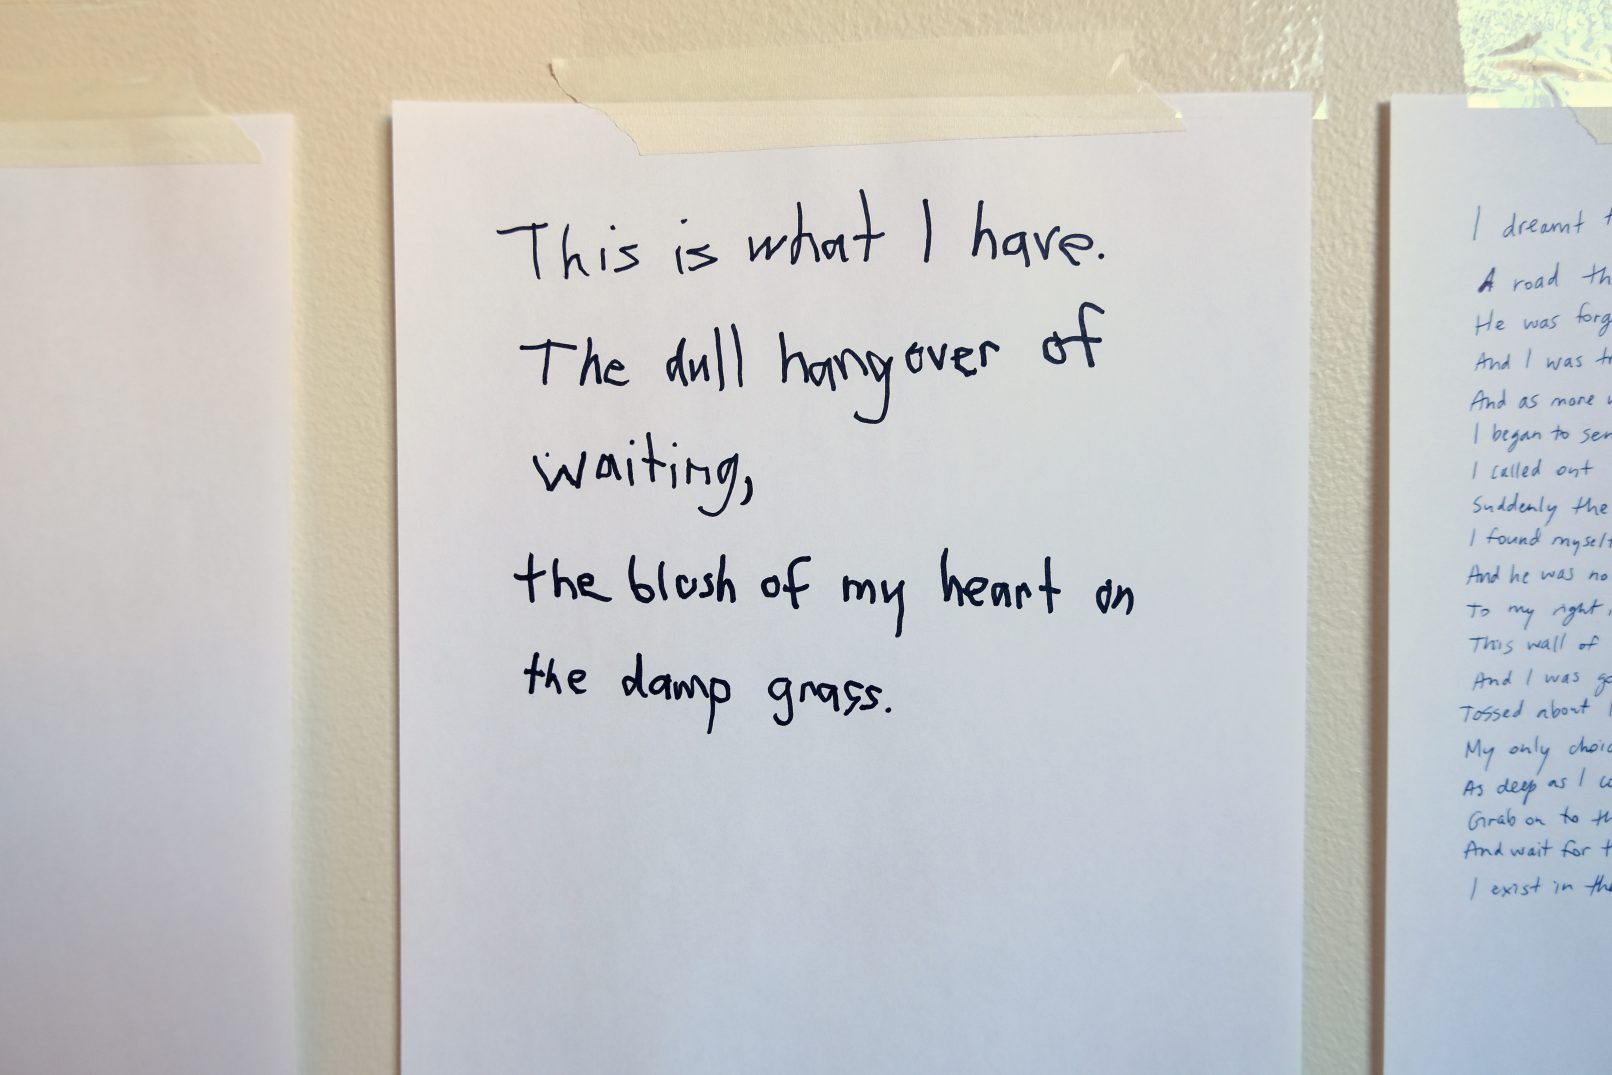 This is what I have.
The dull hangover of
waiting,
the blush of my heart on
the damp grass.
I dreamt
A road
He was
And I was
And as more
I began to
I called out
Suddenly the
I found
And he was
To my right,
This wall of
And I was
Tossed about
My only
As deep as I
Grab on to
And wait for
I exist in